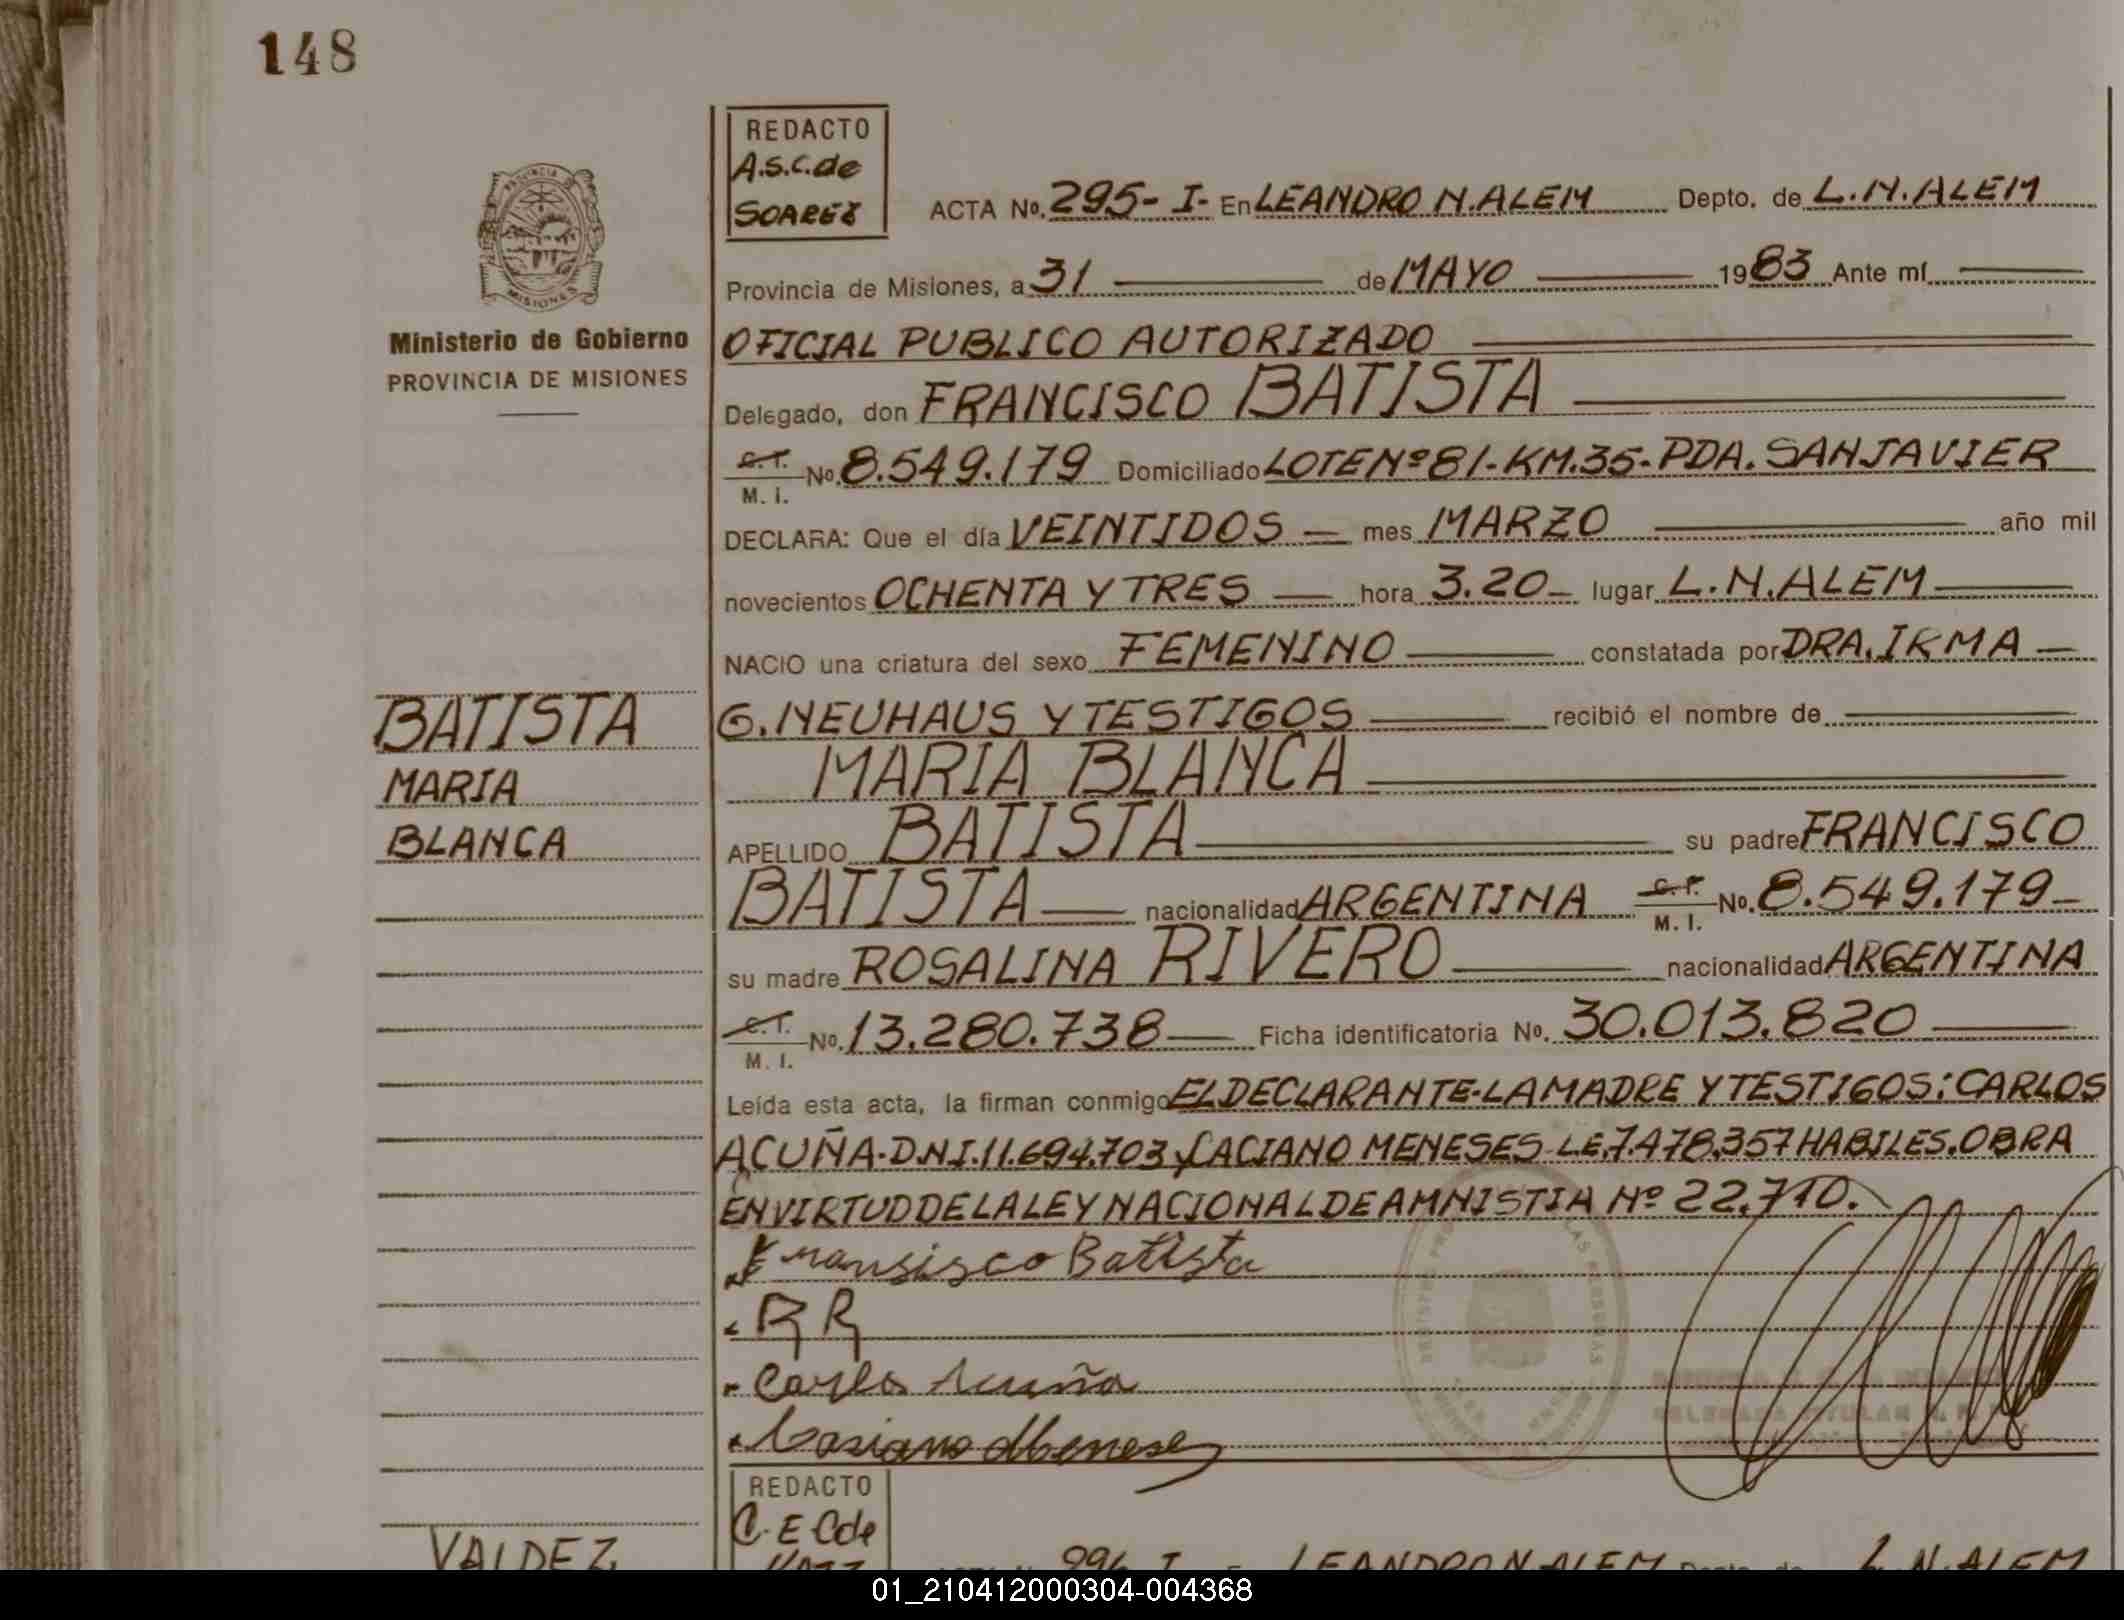 148
PROVINCIA DE
MISIONES
Ministerio de Gobierno
PROVINCIA DE MISIONES
REDACTO
A.S.C.de
SOAREZ
ACTA No. 295- I- En LEANDRO N.ALEM Depto. de L.N.ALEM
Provincia de Misiones, a 31 de MAYO 1983 Ante mí
OFICIAL PUBLICO AUTORIZADO
Delegado, don FRANCISCO BATISTA
C.I. M. I. No. 8.549.179 Domiciliado LOTE Nº 81-KM.35-PDA.SANJAVIER
DECLARA: Que el día VEINTIDOS mes MARZO año mil
novecientos OCHENTA Y TRES hora 3.20 lugar L.N.ALEM
NACIO una criatura del sexo FEMENINO constatada por DRA.IRMA
G.NEUHAUS Y TESTIGOS recibió el nombre de
MARIA BLANCA
APELLIDO BATISTA su padre FRANCISCO
BATISTA nacionalidad ARGENTINA C.I. M. I. No. 8.549.179
su madre ROSALINA RIVERO nacionalidad ARGENTINA
C.I. M. I. No. 13.280.738 Ficha identificatoria No. 30.013.820
Leída esta acta, la firman conmigo EL DECLARANTE-LA MADRE Y TESTIGOS: CARLOS
ACUÑA-D.N.I.11.694.703 Y CACIANO MENESES-L.E.7.478.357 HABILES.OBRA
EN VIRTUD DE LA LEY NACIONAL DE AMNISTIA Nº 22.710.
Fransisco Batista
R R
Carlos Acuña
Casiano Meneses
BATISTA
MARIA
BLANCA
REDACTO
C. E C de
VALDEZ
296 I LEANDRO N.ALEM Depto. de L.N.ALEM
01_210412000304-004368